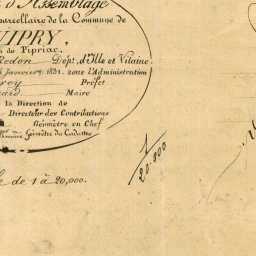 d'Assemblage
parcellaire de la Commune de
UIPRY,
de Pipriac.
Redon Dépt. d'Ille et Vilaine.
Janvier 1831. sous l'Administration
Préfet
Maire
la Direction de
Directeur des Contributions
Géomètre en Chef
Géomètre du Cadastre
de 1 à 20,000.
1
20.000